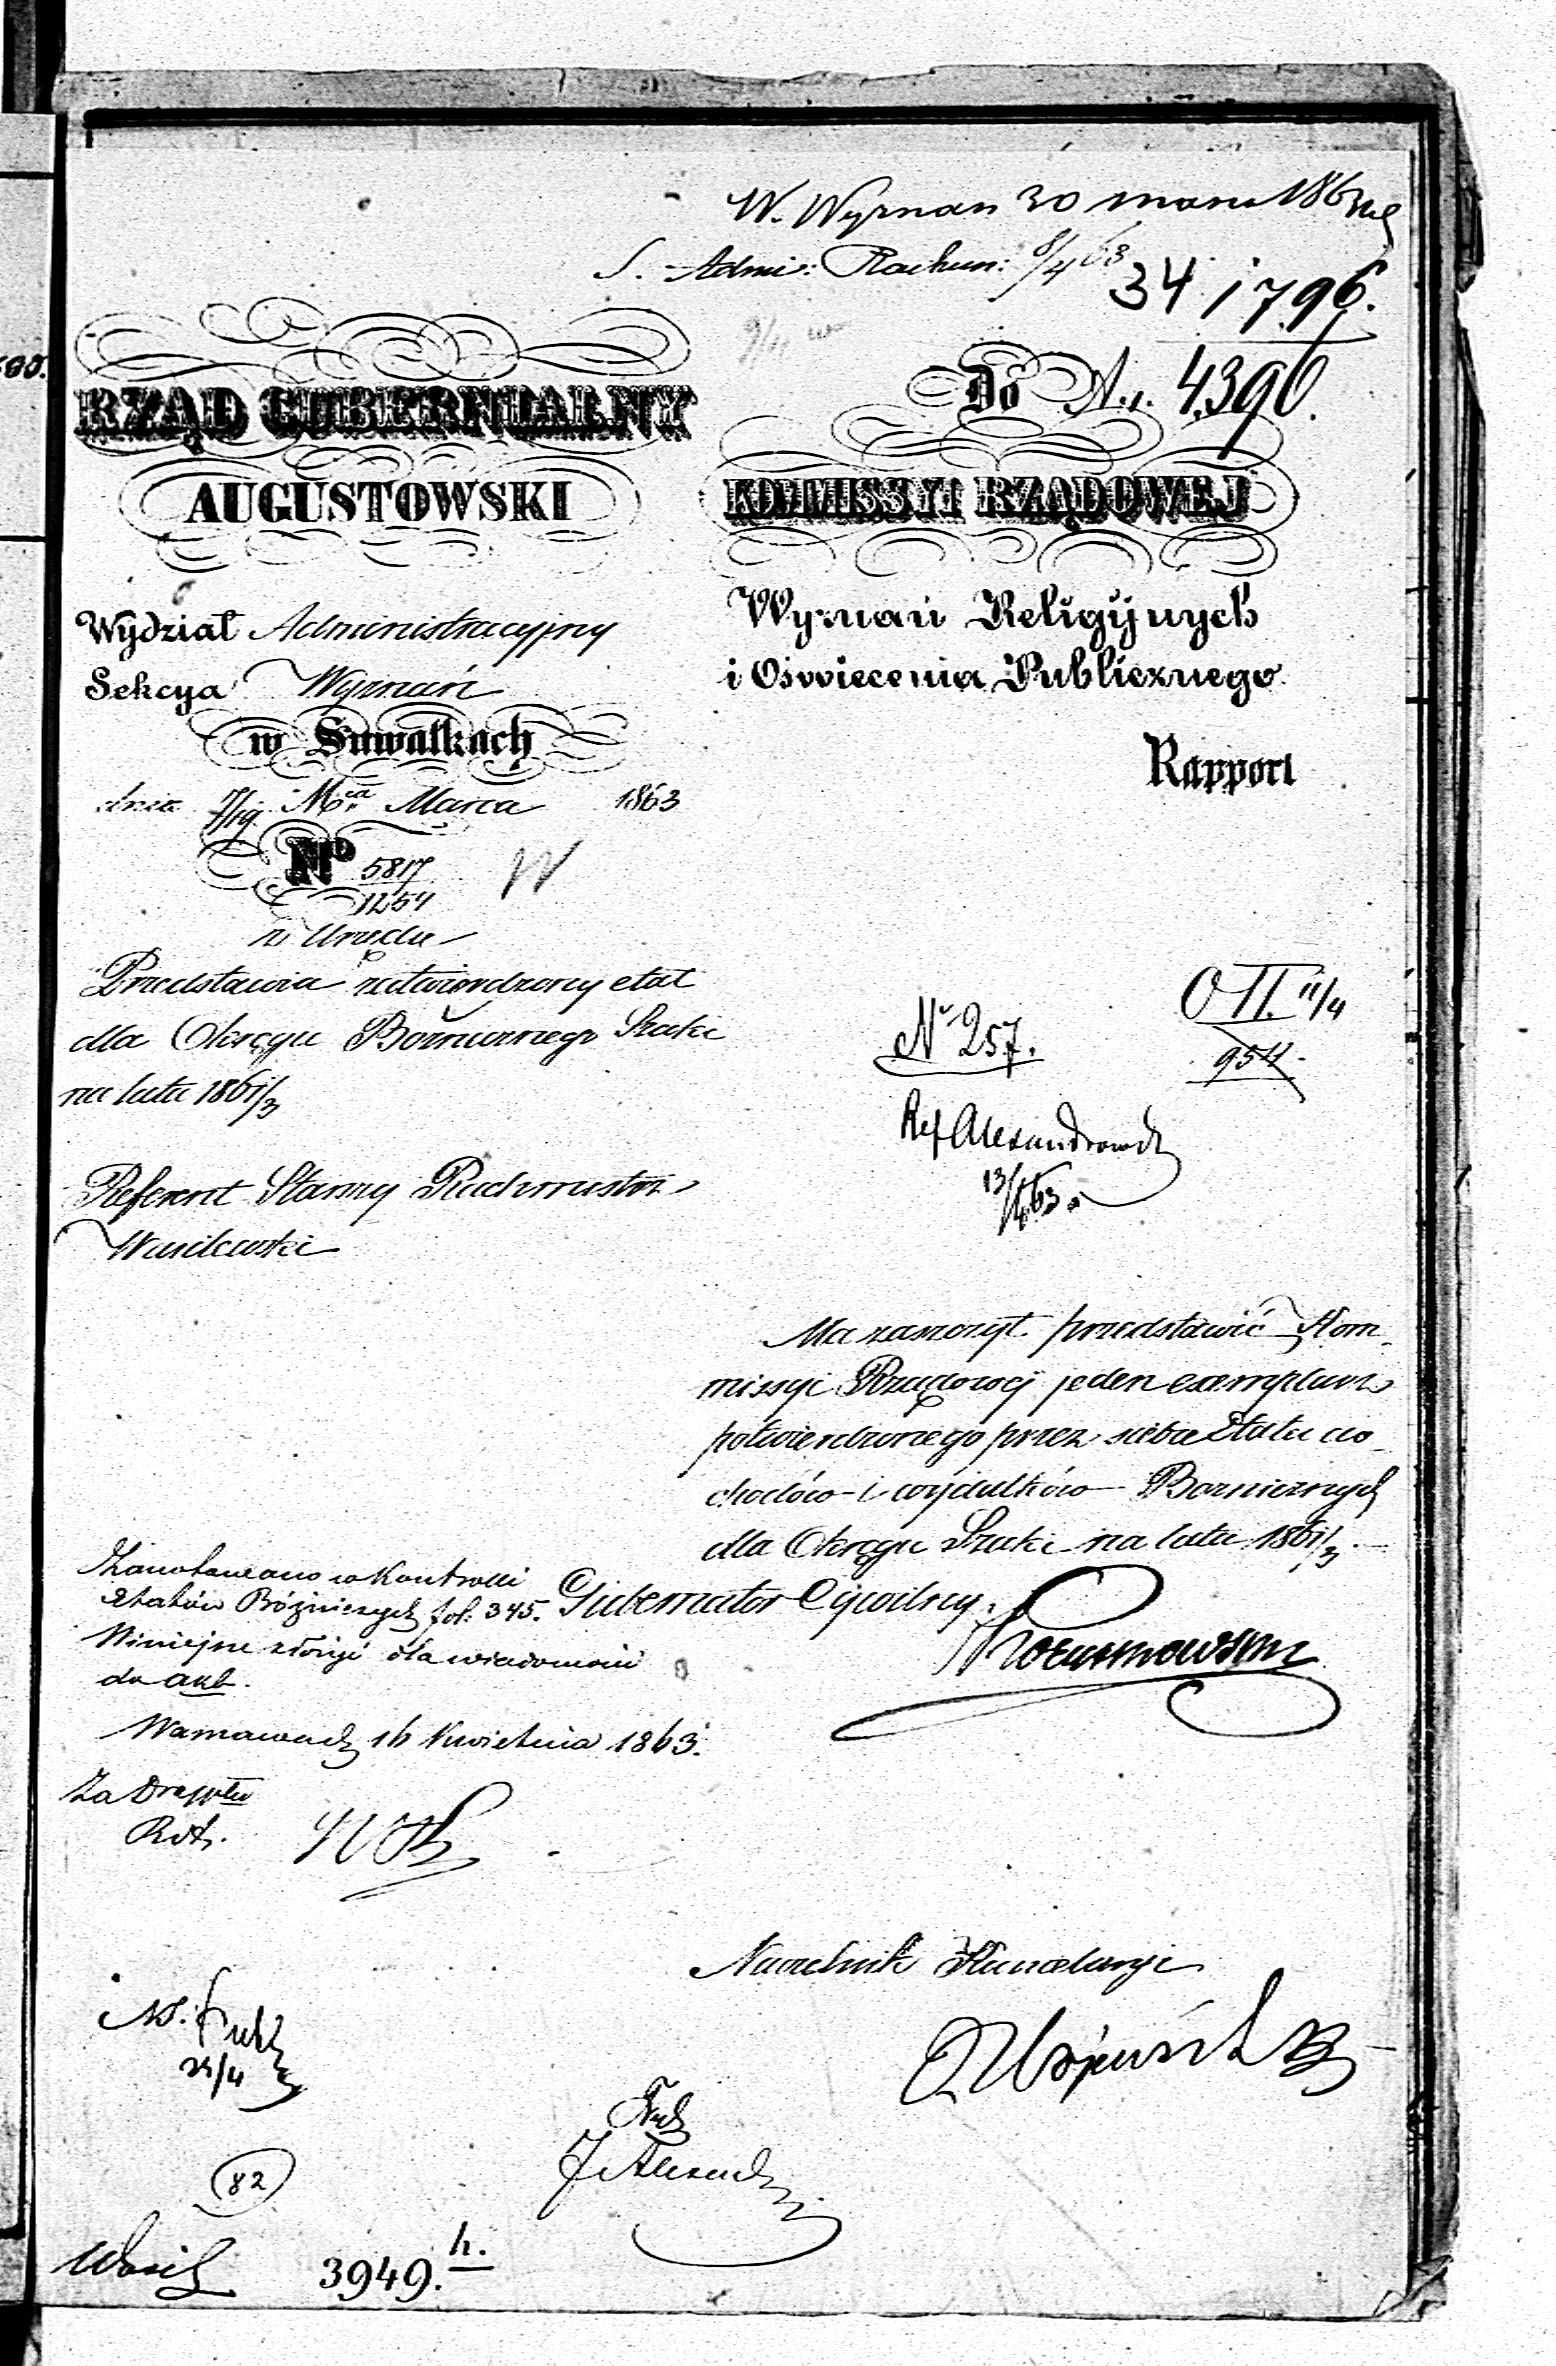 W. Wyznań 30 marca 1863
S. Admi: Rachun: 8/4 63
34 1796.
9/4
RZĄD GUBERNIALNY
AUGUSTOWSKI
Do A. 4390.
KOMMISSYI RZĄDOWEJ
Wyznań Religijnych
i Oświecenia Publicznego
Rapport
Wydział Administracyjny
Sekcya Wyznań
w Suwałkach
dnia 7/19 Mca Marca 1863
No 5817
1254
W
z Urzędu
Przedstawia zatwierdzony etat
dla Okręgu Bożnicznego Szaki
na lata 1861/3
Referent Starszy Rachmistrz
Wasilewski
No 257.
O II. 11/4
954.
Ref Alexandrowicz
13/4 63
Ma zaszczyt przedstawić Kom-
missyi Rządowej jeden exemplarz
potwierdzonego przez siebie Etatu do-
chodów i wydatków Bozniczných
dla Okręgu Szaki na lata 1861/3.
Gubernator Cywilny.
Zanotowano w Kontrolli
etatów Bóżniczych fol: 345.
Niniejsze złożyć dla wiadomości
do akt.
Warszawa d. 16 Kwietnia 1863.
Za Dyrektora
Naczelnik Kancelaryi
24/4
J Alexand
82
Wasil
3949. h.